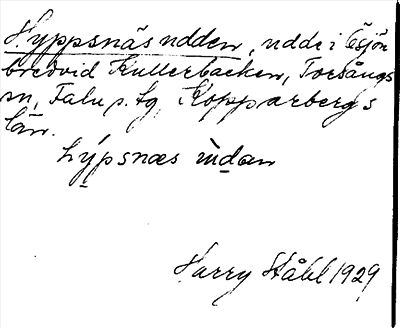 Hyppsnäsudden, udde i Ösjön
bredvid Kullerbacken, Torsångs
sn, Falu s. tg, Kopparbergs
län.
hýpsnæs ùdan
Harry Ståhl 1929